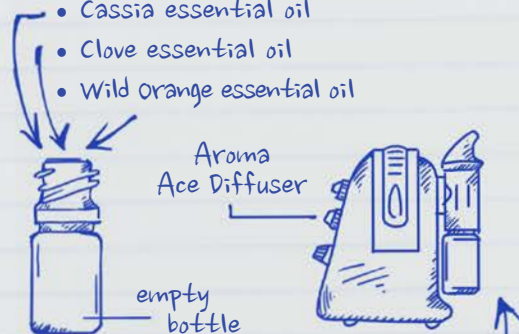 • Cassia essential oil
• Clove essential oil
• Wild Orange essential oil
Aroma
Ace Diffuser
empty
bottle